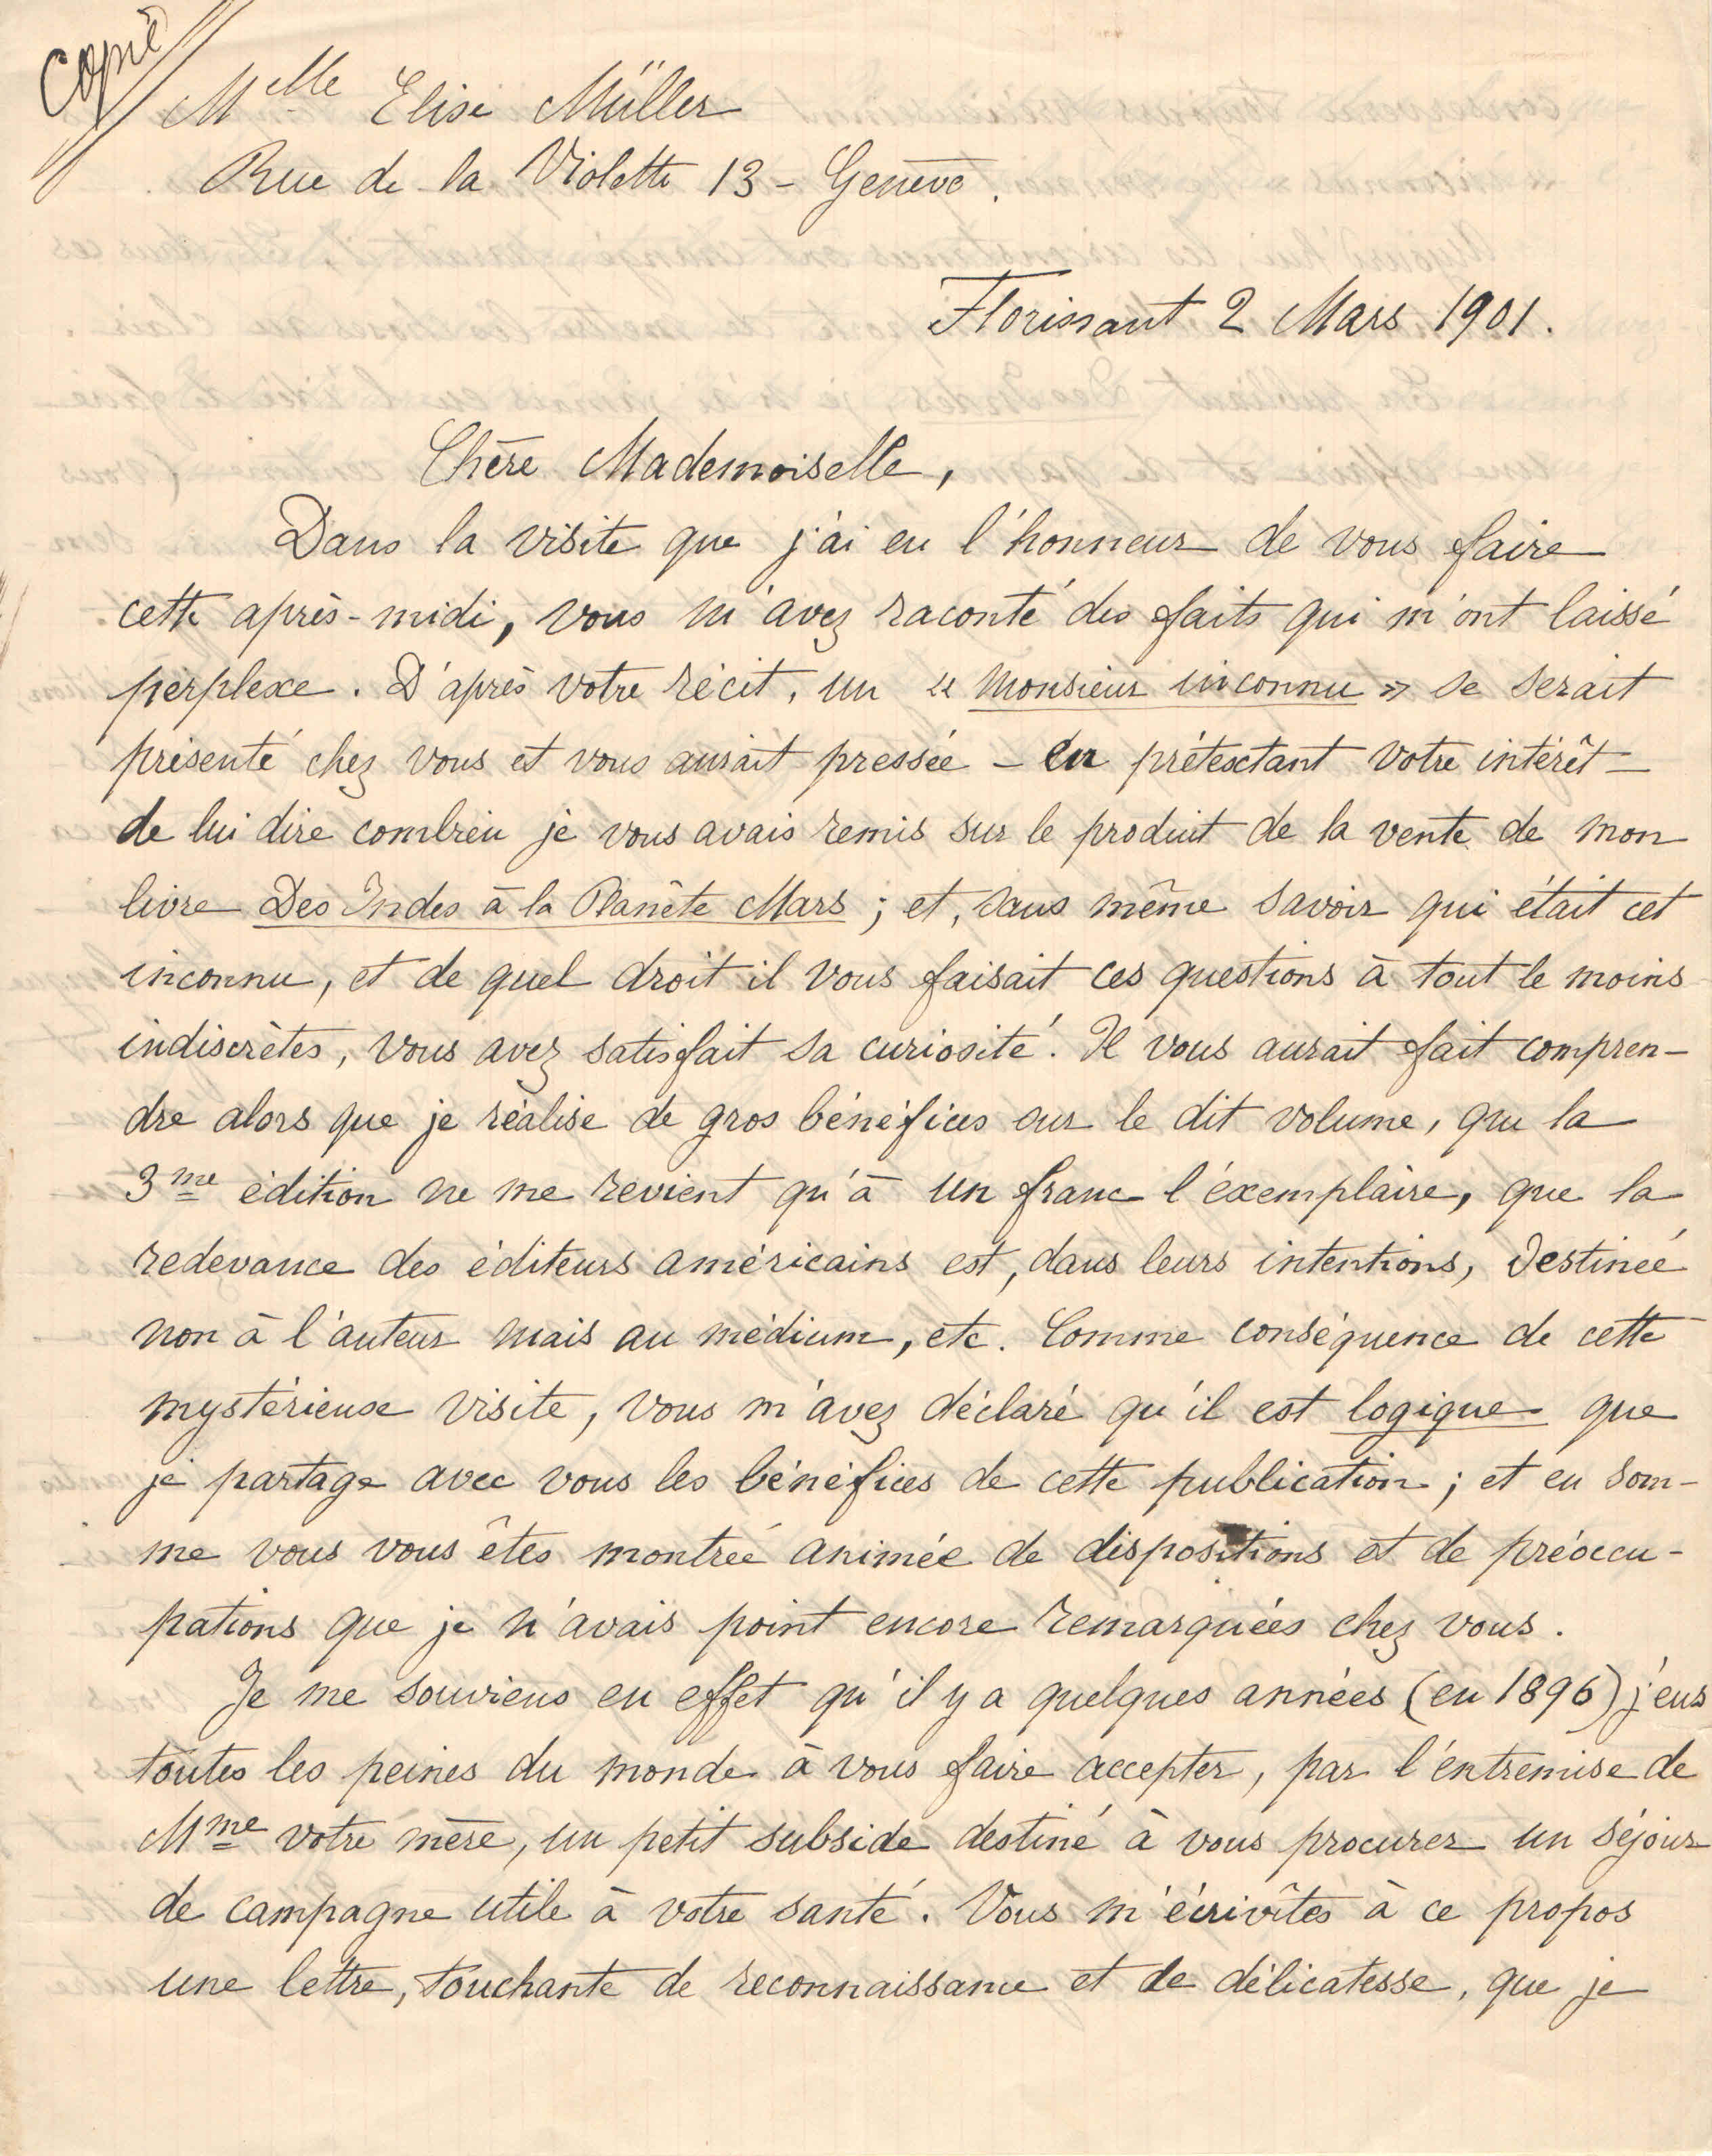 Copie
Mlle Elise Müller
Rue de la Violette 13 - Genève.
Florissant 2 Mars 1901.
Chère Mademoiselle,
Dans la visite que j'ai eu l'honneur de vous faire
cette après-midi, vous m'avez raconté des faits qui m'ont laissé
perplexe. D'après votre récit, un « Monsieur inconnu » se serait
présenté chez vous et vous aurait pressée – en prétextant votre intérêt –
de lui dire combien je vous avais remis sur le produit de la vente de mon
livre Des Indes à la Planète Mars ; et, sans même savoir qui était cet
inconnu, et de quel droit il vous faisait ces questions à tout le moins
indiscrètes, vous avez satisfait sa curiosité. Il vous aurait fait compren-
dre alors que je réalise de gros bénéfices sur le dit volume, que la
3me édition ne me revient qu'à un franc l'exemplaire, que la
redevance des éditeurs américains est, dans leurs intentions, destinée
non à l'auteur mais au médium, etc. Comme conséquence de cette
mystérieuse visite, vous m'avez déclaré qu'il est logique que
je partage avec vous les bénéfices de cette publication ; et en som-
me vous vous êtes montrée animée de dispositions et de préoccu-
pations que je n'avais point encore remarquées chez vous.
Je me souviens en effet qu'il y a quelques années (en 1896) j'eus
toutes les peines du monde à vous faire accepter, par l'entremise de
Mme votre mère, un petit subside destiné à vous procurer un séjour
de campagne utile à votre santé. Vous m'écrivîtes à ce propos
une lettre, touchante de reconnaissance et de délicatesse, que je